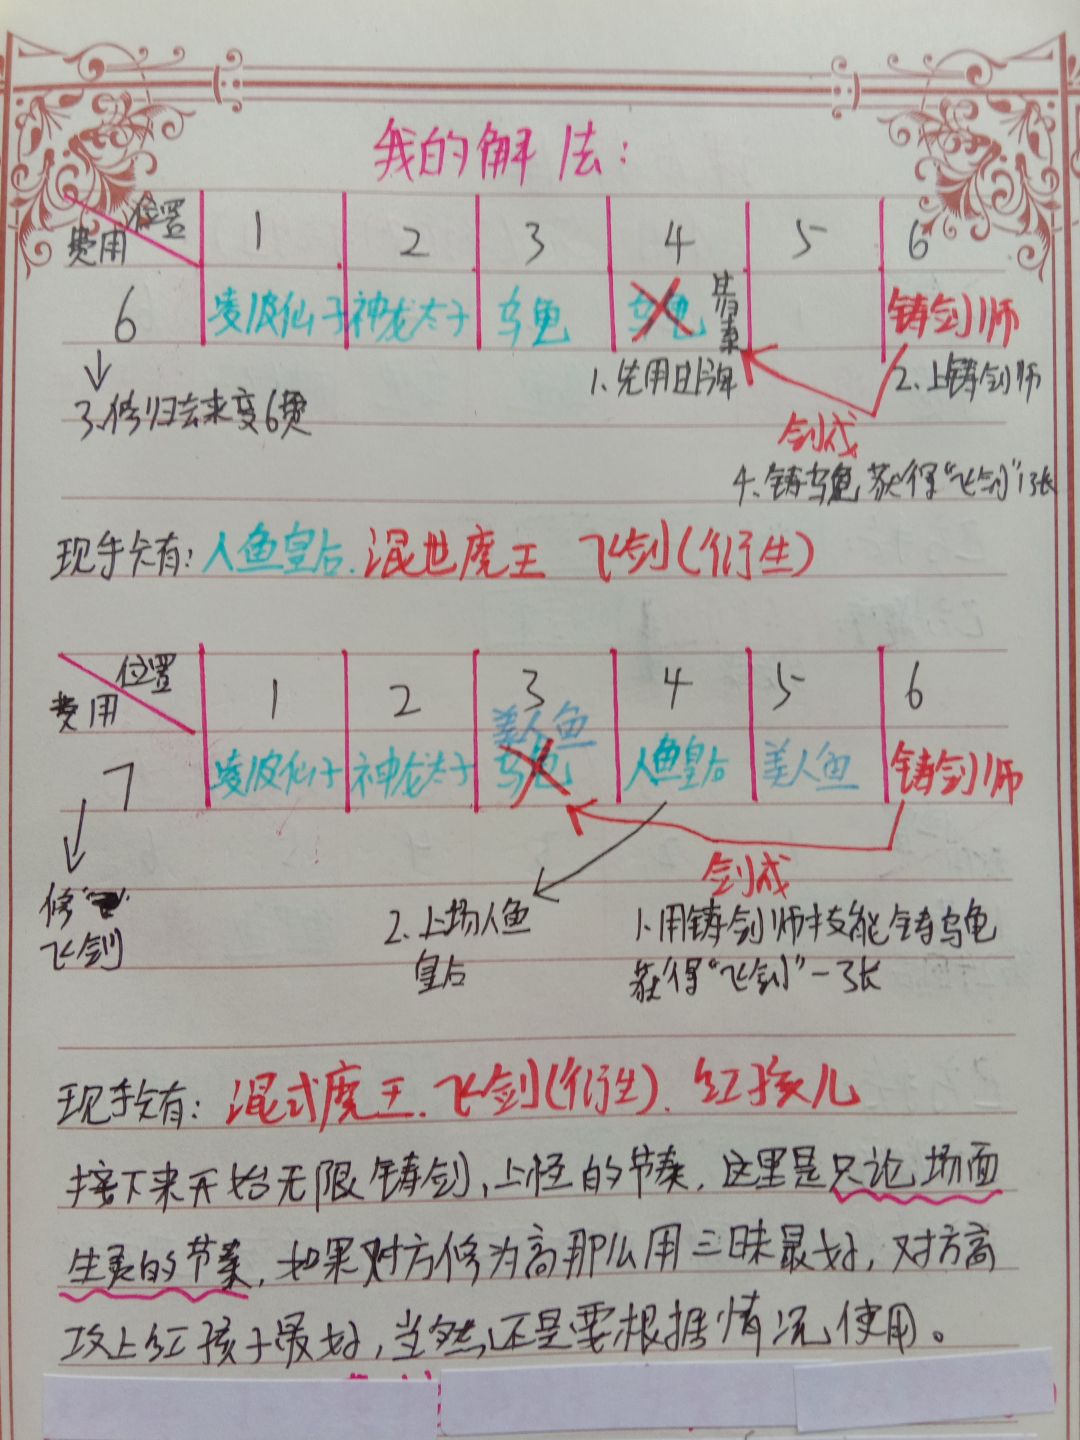 我的解法：
费用 位置 1 2 3 4 5 6
6 凌波仙子 神龙太子 乌龟 乌龟 毒 铸剑师
1、先用
2、上铸剑师
3、修归去来变6费
剑成
4、铸乌龟获得“飞剑”1张
现手卡有：人鱼皇后、混世魔王 飞剑（衍生）
费用 位置 1 2 3 4 5 6
美人鱼
7 凌波仙子 神龙太子 乌龟 人鱼皇后 美人鱼 铸剑师
剑成
修“
飞剑
2、上场人鱼
皇后
1、用铸剑师技能铸乌龟
获得“飞剑”一张
现手卡有：混式魔王、飞剑（衍生）、红孩儿
接下来开始无限铸剑，上怪的节奏，这里是只论场面
生灵的节奏，如果对方修为高那么用三昧最好，对方高
攻上红孩子最好，当然还是要根据情况使用。